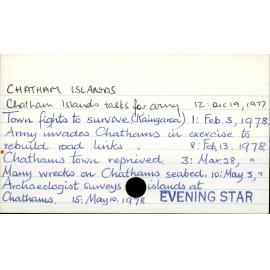 CHATHAM ISLANDS
Chatham Islands tasks for army 12: Dec 19, 1977
Town fights to survive (Kaingaroa) 1: Feb. 3, 1978.
Army invades Chathams in exercise to
rebuild road links. 8: Feb. 13, 1978
Chathams town reprieved. 3: Mar. 28, "
Many wrecks on Chathams seabed. 10: May 3, "
Archaeologist surveys islands at
Chathams. 15: May 10. 1978 EVENING STAR